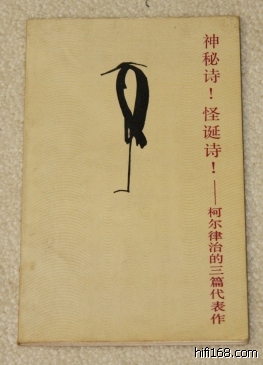 神秘诗！怪诞诗！——柯尔律治的三篇代表作
hifi168.com